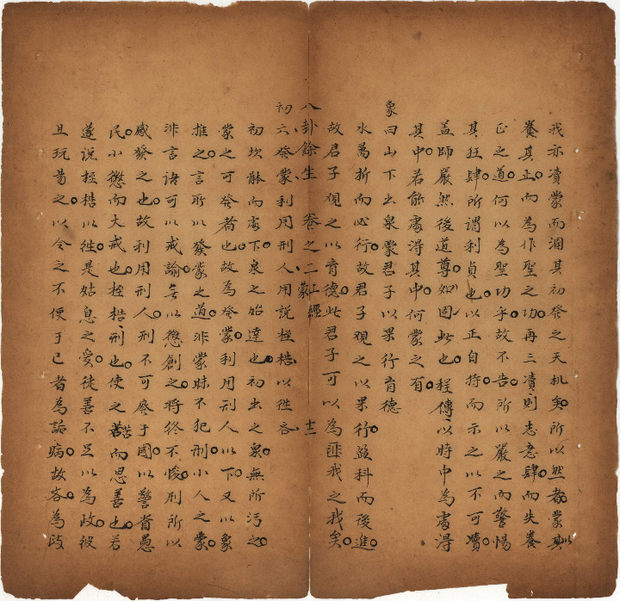 我亦瀆蒙而涸其初發之天機矣所以然者蒙以
養其正而為作聖之功再三瀆則志老肆而失養
正之道何以為聖功乎故不告所以嚴之而警惕
其狂肆所謂利貞也以正自持而示之以不可瀆
蓋師嚴然後道尊如固此也程傳以時中為處得
其中若能處得其中何蒙之有
象曰山下出泉蒙君子以果行育德
水為折而必行故君子觀之以果行盈科而後進
故君子觀之以育德此君子可以為匪我之我矣
八卦餘生 卷之二 上經 蒙 十二
初六發蒙利用刑人用說桎梏以往吝
初坎體而處下泉之始達也初出之泉無所污之
蒙之可發者也故為發蒙利用刑人以下又以象
推之言所以發蒙之道非蒙昧不犯刑小人之蒙
非言語可以戒諭無以懲創之將終不悛刑所以
感發之也故利用刑人刑不可廢于國以警省愚
民小懲而大戒也桎梏刑也使之苦而思善也若
遂說桎梏以往是姑息之愛徒善不足以為政彼
且玩易之以令之不便于己者為詬病故吝為政